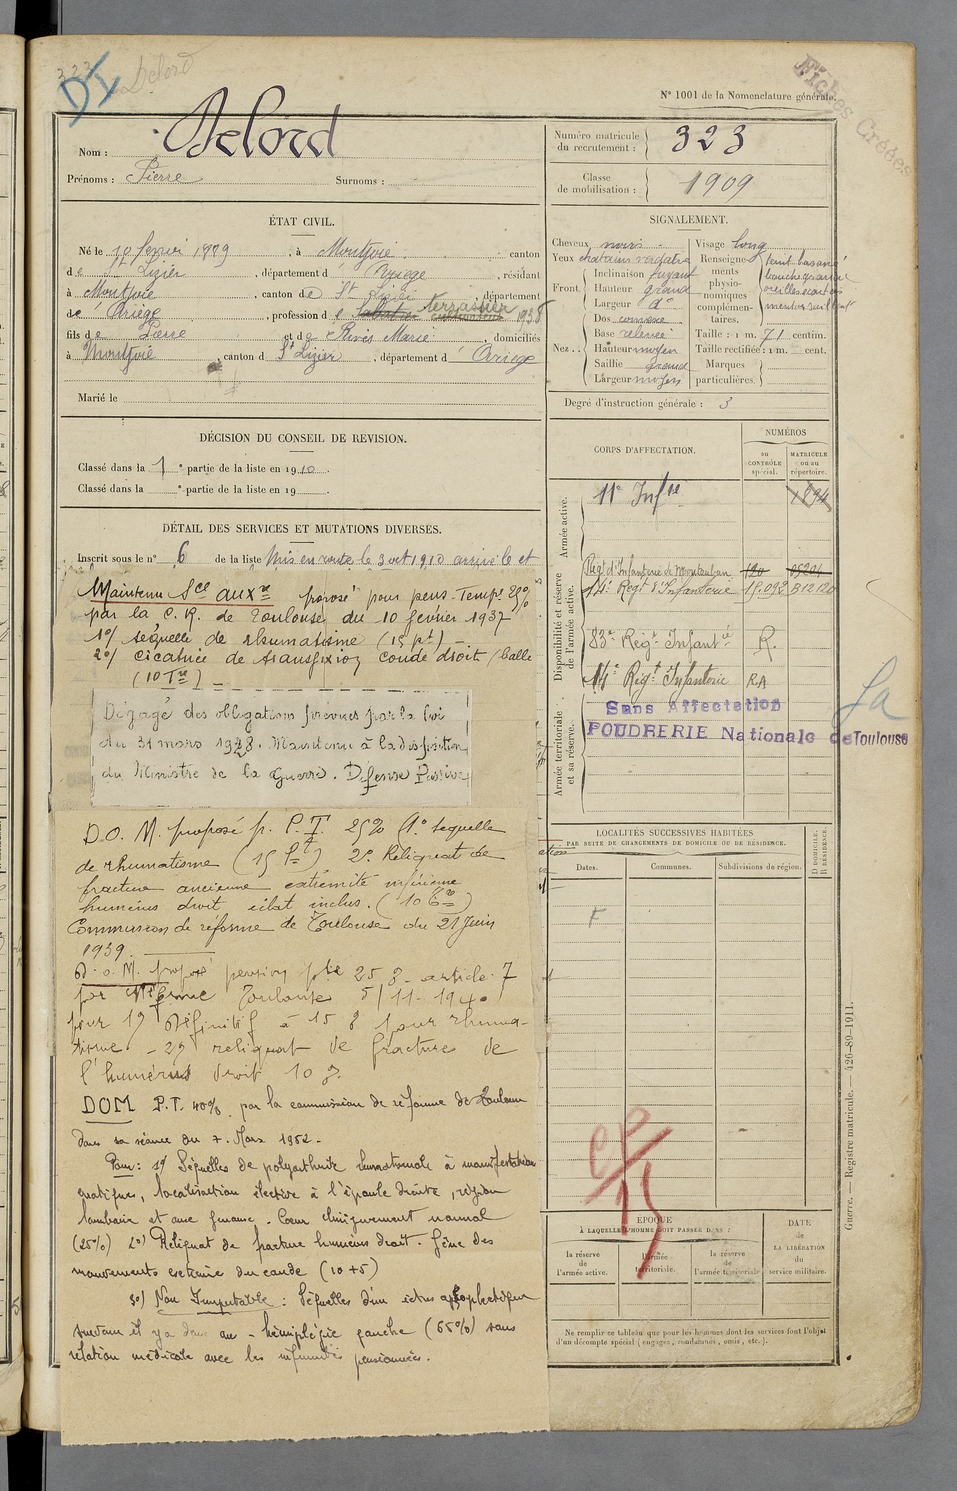 323
Delord
DI
Fiches Créées
N° 1001 de la Nomenclature générale.
Nom : Delord
Prénoms : Pierre Surnoms :
Numéro matricule du recrutement : 323
Classe de mobilisation : 1909
ÉTAT CIVIL.
Né le 10 février 1889, à Montjoie canton
de St Lizier, département d' Ariège, résidant
à Montjoie, canton de St Lizier, département
de l'Ariège, profession de cultivateur terrassier 1938
fils de Pierre et de Rivès Marie, domiciliés
à Montjoie, canton d St Lizier, département d' Ariège
Marié le
SIGNALEMENT.
Cheveux noirs
Yeux chatains verdatre
Front. Inclinaison fuyant
Hauteur grand
Largeur do
Nez.. Dos convexe
Base relevée
Hauteur moyen
Saillie grand
Largeur moyen
Visage long
Renseignements physionomiques complémentaires. teint basané
bouche grande
oreilles écartées
menton saillant
Taille : 1 m. 71 centim.
Taille rectifiée : 1 m. cent.
Marques particulières.
Degré d'instruction générale : 3
DÉCISION DU CONSEIL DE REVISION.
Classé dans la 1e partie de la liste en 1910.
Classé dans la e partie de la liste en 19 .
DÉTAIL DES SERVICES ET MUTATIONS DIVERSES.
Inscrit sous le n° 6 de la liste Mis en route le 3 oct 1910 arrivé le et
Maintenu Sce auxre proposé pour pens. Tempre 20%
par la C. R. de Toulouse du 10 février 1937
1°/ séquelle de rhumatisme (15 pt)
2°/ cicatrice de transfixion coude droit / balle
(10 Tre)
Dégagé des obligations prévues par la loi
du 31 mars 1928. Maintenu à la disposition
du Ministre de la Guerre. Defense Passive
D.O. M. proposé p. P.T. 25% (1° sequelle
de rhumatisme (15 Pt) 2° Reliquat de
fracture ancienne extremité inférieure
humérus droit éclat inclus. (10 %)
Commission de réforme de Toulouse du 21 Juin
1939.
D.O.M. proposé pension 25 % article 7
par Toulouse 5/11-1940
pour 1° définitif à 15 % pour rhuma-
tisme - 2° reliquat de fractures de
l'humérus droit 10 %.
DOM P.T. 40% par la commission de réforme de Toulouse
dans sa séance du 7. Mars 1952.
Pour : 1°/ Séquelles de polyarthrite rhumatismale à manifestation
, localisation élective à l'épaule droite, région
lombaire et aux genoux. Coeur cliniquement normal
(25%) 2°) Reliquat de fracture humérus droit. Gêne des
mouvements du coude (10 +5)
3°) Non Imputable : Séquelles d'un ictus apoplectique
survenu il y a deux ans - hémiplégie gauche (65%) sans
relation médicale avec les infirmités pensionnées.
CORPS D'AFFECTATION.
NUMÉROS
au CONTRÔLE spécial.
MATRICULE ou au répertoire.
Armée active.
11e Infie 1894
Disponibilité et réserve de l'armée active.
Régt d'Infanterie de Montauban 120 05204
14e Régt d'Infanterie 15.092 B12120
83e Régt Infantie R.
14e Régt Infanterie R.A
Armée territoriale et sa réserve.
Sans Affectation
POUDRERIE Nationale de Toulouse
Sa
LOCALITÉS SUCCESSIVES HABITÉES
PAR SUITE DE CHANGEMENTS DE DOMICILE OU DE RÉSIDENCE.
Dates. Communes. Subdivisions de région.
D. DOMICILE. R. RÉSIDENCE.
F
CP
15
ÉPOQUE
À LAQUELLE L'HOMME DOIT PASSER DANS :
la réserve de l'armée active.
l'armée territoriale.
la réserve de l'armée territoriale
DATE de LA LIBÉRATION du service militaire.
Ne remplir ce tableau que pour les hommes dont les services font l'objet
d'un décompte spécial (engagés, condamnés, omis, etc.).
Guerre. — Registre matricule. — 426-89-1911.